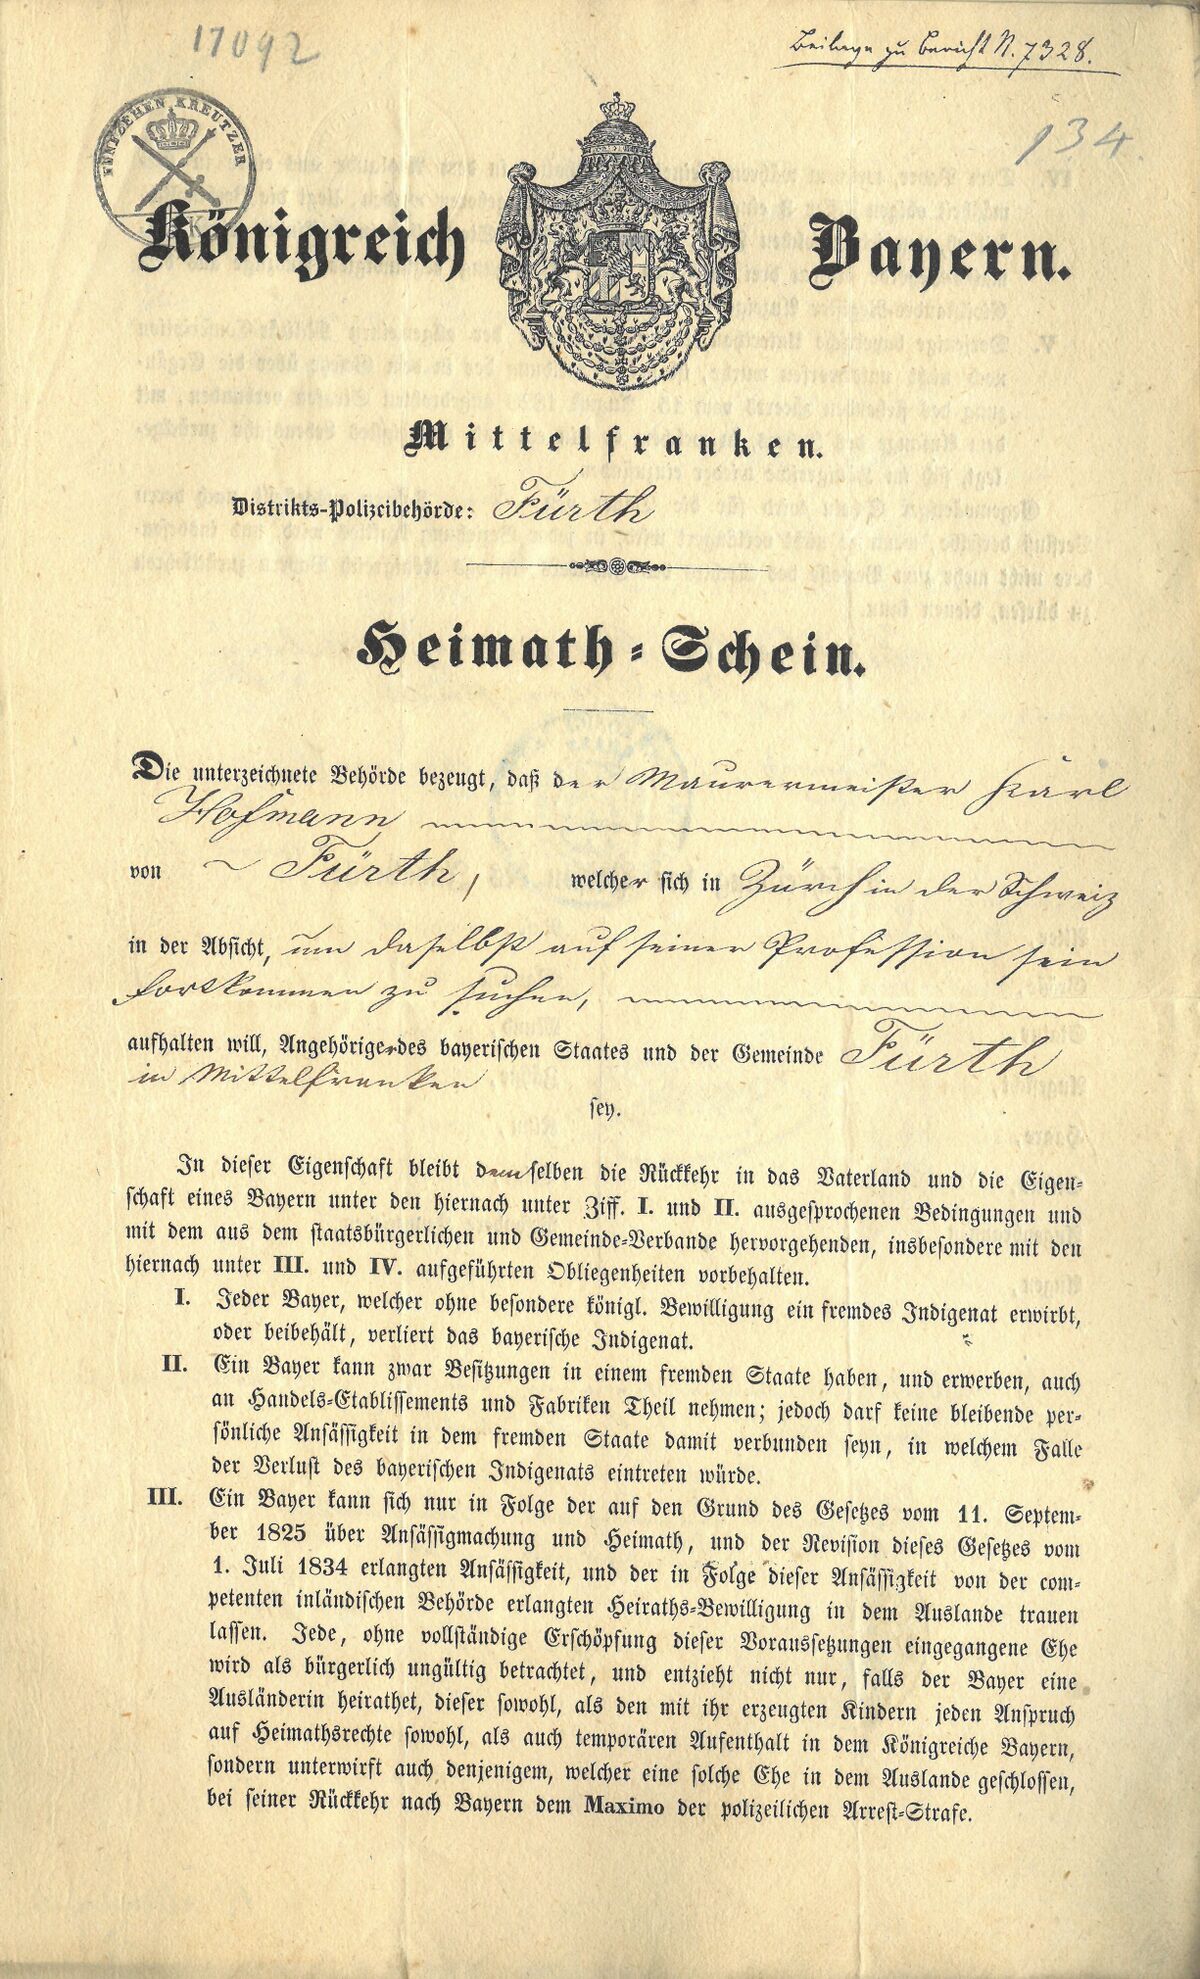 17092
Beilage zu Bericht N. 7328.
FÜNFZEHEN KREUTZER
134.
Königreich Bayern.
Mittelfranken.
Distrikts-Polizeibehörde: Fürth
Heimath-Schein.
Die unterzeichnete Behörde bezeugt, daß der Maurermeister Karl
Hofmann
von Fürth, welcher sich in Zürch in der Schweiz
in der Absicht, um daselbst auf seiner Profession sein
Fortkommen zu suchen,
aufhalten will, Angehöriger des bayerischen Staates und der Gemeinde Fürth
in Mittelfranken
sey.
In dieser Eigenschaft bleibt demselben die Rückkehr in das Vaterland und die Eigen-
schaft eines Bayern unter den hiernach unter Ziff. I. und II. ausgesprochenen Bedingungen und
mit dem aus dem staatsbürgerlichen und Gemeinde-Verbande hervorgehenden, insbesondere mit den
hiernach unter III. und IV. aufgeführten Obliegenheiten vorbehalten.
I. Jeder Bayer, welcher ohne besondere königl. Bewilligung ein fremdes Indigenat erwirbt,
oder beibehält, verliert das bayerische Indigenat.
II. Ein Bayer kann zwar Besitzungen in einem fremden Staate haben, und erwerben, auch
an Handels-Etablissements und Fabriken Theil nehmen; jedoch darf keine bleibende per-
sönliche Ansässigkeit in dem fremden Staate damit verbunden seyn, in welchem Falle
der Verlust des bayerischen Indigenats eintreten würde.
III. Ein Bayer kann sich nur in Folge der auf den Grund des Gesetzes vom 11. Septem-
ber 1825 über Ansässigmachung und Heimath, und der Revision dieses Gesetzes vom
1. Juli 1834 erlangten Ansässigkeit, und der in Folge dieser Ansässigkeit von der com-
petenten inländischen Behörde erlangten Heiraths-Bewilligung in dem Auslande trauen
lassen. Jede, ohne vollständige Erschöpfung dieser Voraussetzungen eingegangene Ehe
wird als bürgerlich ungültig betrachtet, und entzieht nicht nur, falls der Bayer eine
Ausländerin heirathet, dieser sowohl, als den mit ihr erzeugten Kindern jeden Anspruch
auf Heimathsrechte sowohl, als auch temporären Aufenthalt in dem Königreiche Bayern,
sondern unterwirft auch denjenigem, welcher eine solche Ehe in dem Auslande geschlossen,
bei seiner Rückkehr nach Bayern dem Maximo der polizeilichen Arrest-Strafe.